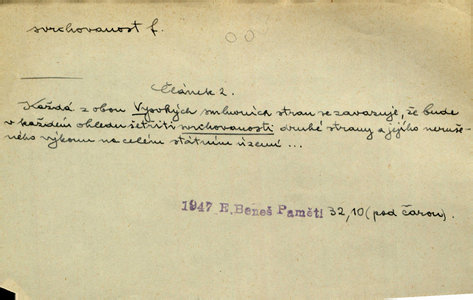 svrchovanost f.
Článek 2.
Každá z obou Vysokých smluvních stran se zavazuje, že bude
v každém ohledu šetřiti svrchovanosti druhé strany a jejího neruše-
ného výkonu na celém státním území ...
1947 E. Beneš Paměti 32,10 (pod čarou).